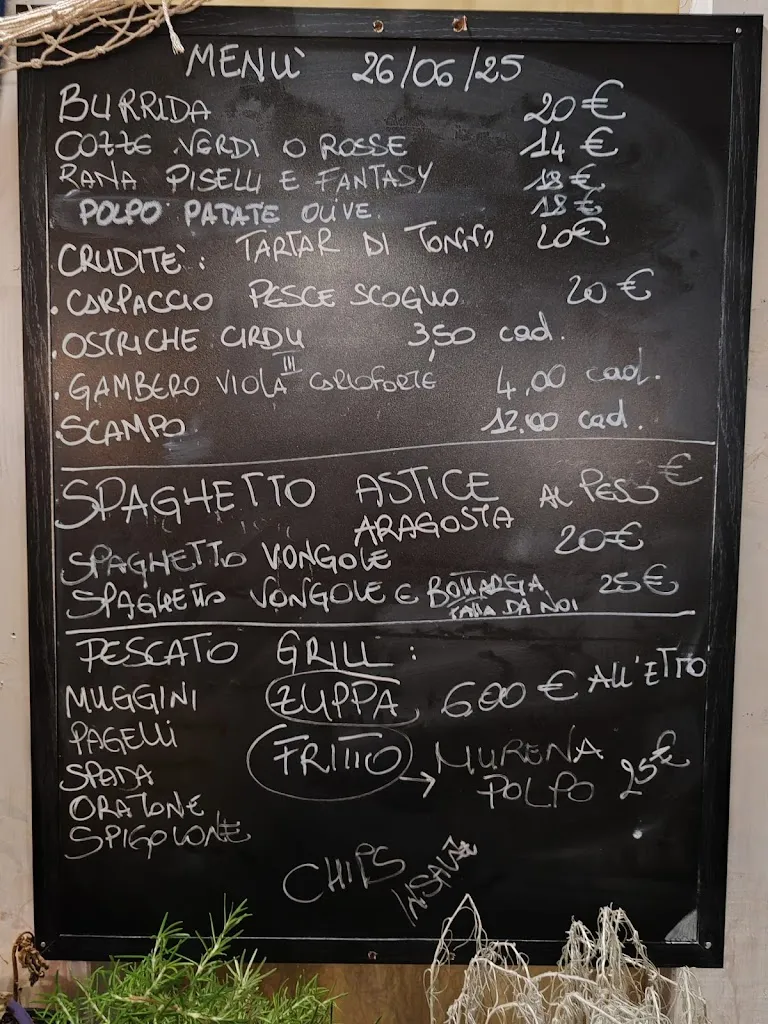 MENÙ 26/06/25
BURRIDA 20 €
COZZE VERDI O ROSSE 14 €
RANA PISELLI E FANTASY 18 €
POLPO PATATE OLIVE 18 €
CRUDITE': TARTAR DI TONNO 20€
. CARPACCIO PESCE SCOGLIO 20 €
. OSTRICHE CARDU 3,50 cad.
. GAMBERO VIOLA III CARLOFORTE 4,00 cad.
. SCAMPO 12.00 cad.
SPAGHETTO ASTICE AL PESO €
ARAGOSTA
SPAGHETTO VONGOLE 20€
SPAGHETTO VONGOLE E BOTTARGA 25€
FATTA DA NOI
PESCATO GRILL:
MUGGINI ZUPPA 6.00 € ALL'ETTO
PAGELLI
FRITTO → MURENA
SPADA POLPO 25€
ORATONE
SPIGOLONE
CHIPS
INSALATE